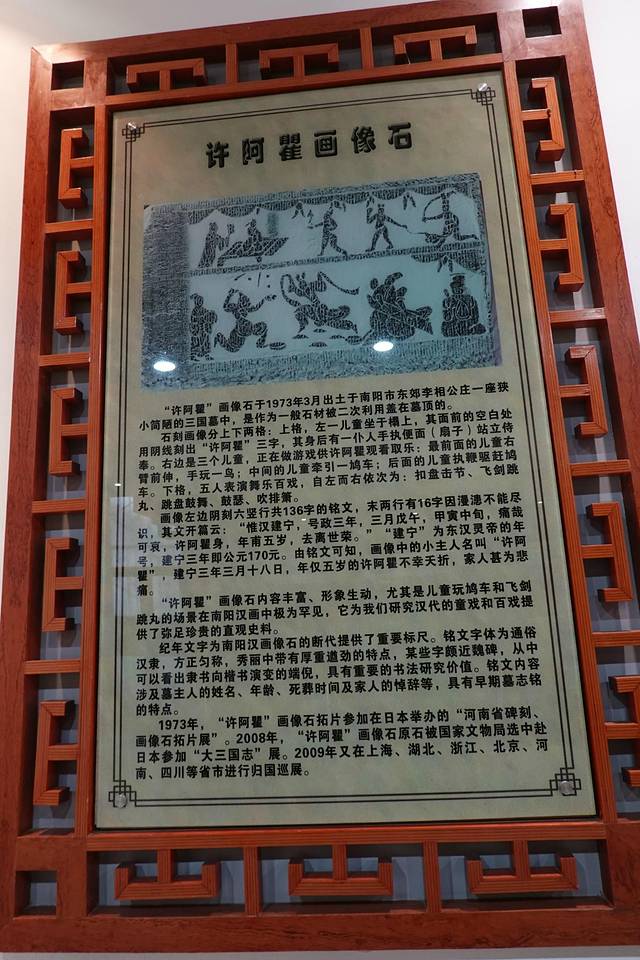 许阿瞿画像石
“许阿瞿”画像石于1973年3月出土于南阳市东郊李相公庄一座狭
小简陋的三国墓中，是作为一般石材被二次利用盖在墓顶的。
石刻画像分上下两格：上格，左一儿童坐于榻上，其面前的空白处
用阴线刻出“许阿瞿”三字，其身后有一仆人手执便面（扇子）站立侍
奉。右边是三个儿童，正在做游戏供许阿瞿观看取乐：最前面的儿童右
臂前伸，手玩一鸟；中间的儿童牵引一鸠车；后面的儿童执鞭驱赶鸠
车。下格，五人表演舞乐百戏，自左而右依次为：扣盘击节、飞剑跳
丸、跳盘鼓舞、鼓瑟、吹排箫。
画像左边阴刻六竖行共136字的铭文，末两行有16字因漫漶不能尽
识，其文开篇云：“惟汉建宁，号政三年，三月戊午，甲寅中旬，痛哉
可哀，许阿瞿身，年甫五岁，去离世荣。”“建宁”为东汉灵帝的年
号，建宁三年即公元170元。由铭文可知，画像中的小主人名叫“许阿
瞿”，建宁三年三月十八日，年仅五岁的许阿瞿不幸夭折，家人甚为悲
痛。
“许阿瞿”画像石内容丰富、形象生动，尤其是儿童玩鸠车和飞剑
跳丸的场景在南阳汉画中极为罕见，它为我们研究汉代的童戏和百戏提
供了弥足珍贵的直观史料。
纪年文字为南阳汉画像石的断代提供了重要标尺。铭文字体为通俗
汉隶，方正匀称，秀丽中带有厚重遒劲的特点，某些字颇近魏碑，从中
可以看出隶书向楷书演变的端倪，具有重要的书法研究价值。铭文内容
涉及墓主人的姓名、年龄、死葬时间及家人的悼辞等，具有早期墓志铭
的特点。
1973年，“许阿瞿”画像石拓片参加在日本举办的“河南省碑刻、
画像石拓片展”。2008年，“许阿瞿”画像石原石被国家文物局选中赴
日本参加“大三国志”展。2009年又在上海、湖北、浙江、北京、河
南、四川等省市进行归国巡展。